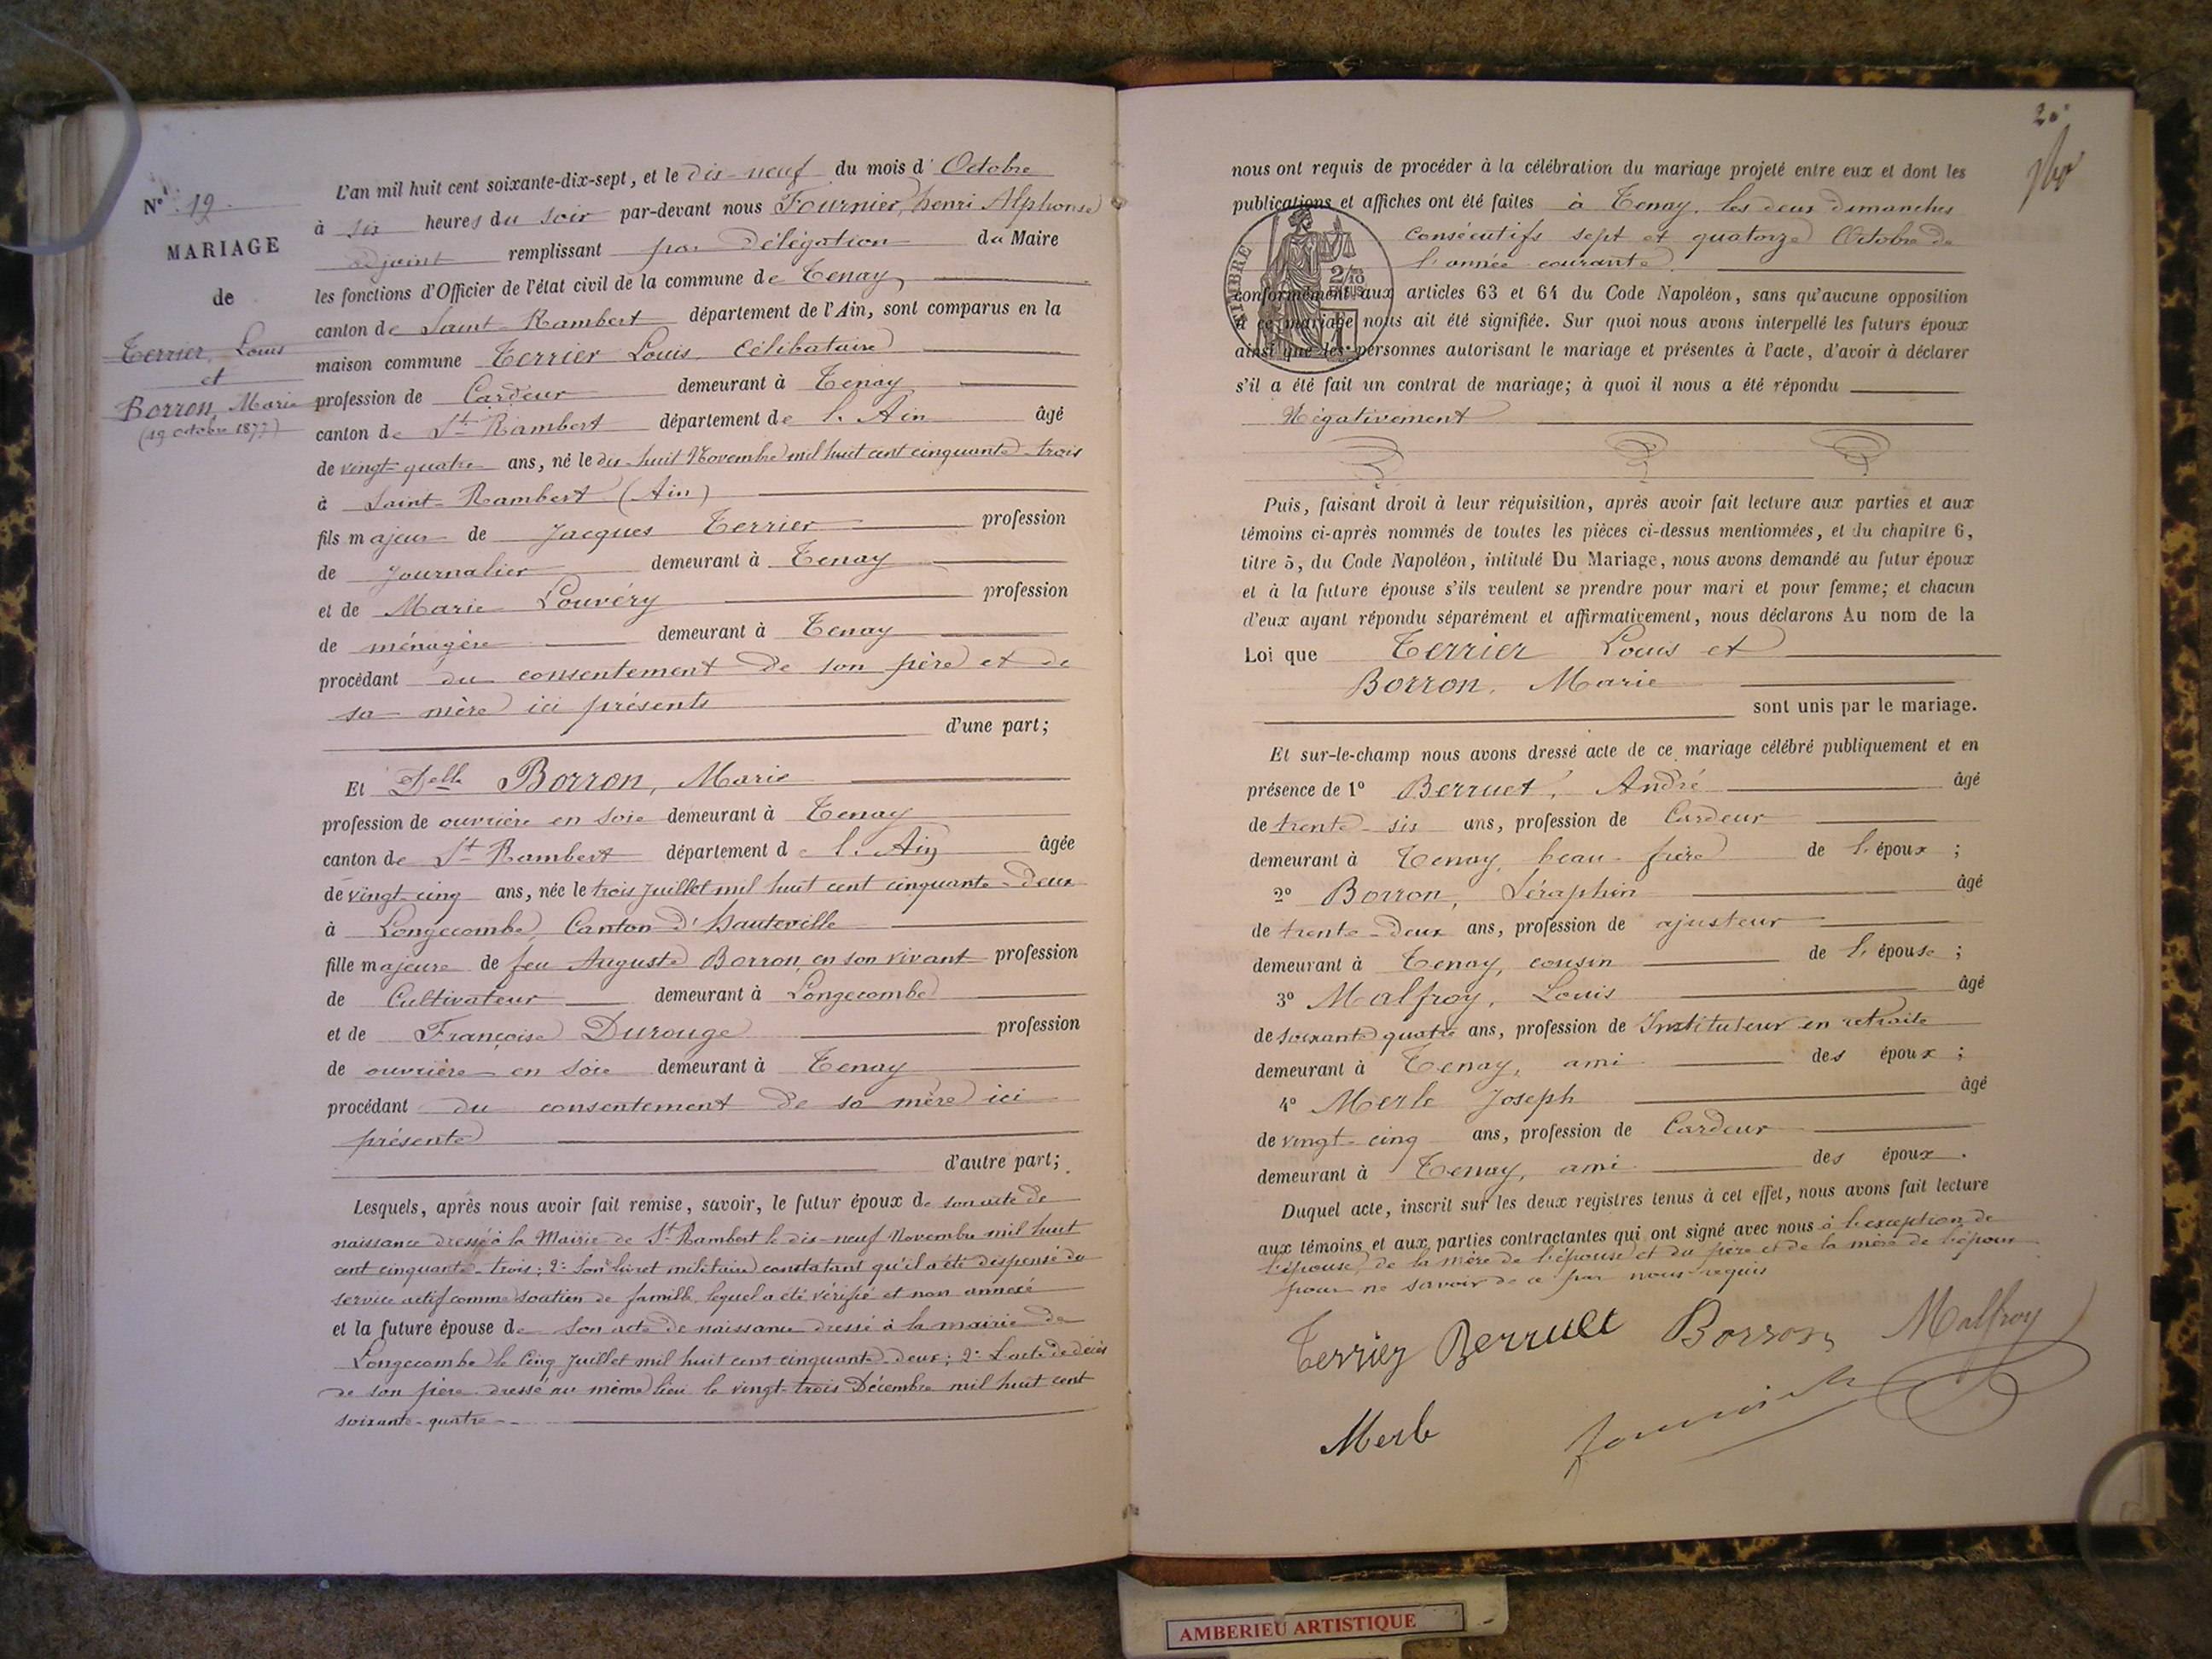 Nº 19
MARIAGE
de
Terrier, Louis
et
Borron, Marie
(19 octobre 1877)
L'an mil huit cent soixante-dix-sept, et le dix-neuf du mois d' Octobre
à six heures du soir par-devant nous Fournier, henri Alphonse
adjoint remplissant par délégation du Maire
les fonctions d'Officier de l'état civil de la commune de Tenay,
canton de Saint-Rambert département de l'Ain, sont comparus en la
maison commune Terrier Louis, Célibataire
profession de Cardeur demeurant à Tenay
canton de St Rambert département de l'Ain âgé
de vingt-quatre ans, né le dix-huit Novembre mil huit cent cinquante-trois
à Saint-Rambert (Ain)
fils majeur de Jacques Terrier profession
de Journalier demeurant à Tenay
et de Marie Louvéry profession
de ménagère demeurant à Tenay
procédant du consentement de son père et de
sa mère ici présents
d'une part;
Et Delle Borron, Marie
profession de ouvrière en soie demeurant à Tenay
canton de St Rambert département de l'Ain âgée
de vingt-cinq ans, née le trois Juillet mil huit cent cinquante-deux
à Longecombe, Canton d'hauteville
fille majeure de feu Auguste Borron, en son vivant profession
de Cultivateur demeurant à Longecombe
et de Françoise Durouge profession
de ouvrière en soie demeurant à Tenay
procédant du consentement de sa mère ici
présente
d'autre part;
Lesquels, après nous avoir fait remise, savoir, le futur époux de son acte de
naissance dressé à la Mairie de St Rambert le dix-neuf Novembre mil huit
cent cinquante-trois; 2º Son livret militaire constatant qu'il a été dispensé du
service actif comme soutien de famille, lequel a été vérifié et non annexé
et la future épouse de Son acte de naissance dressé à la mairie de
Longecombe le Cinq Juillet mil huit cent cinquante-deux; 2º L'acte de décès
de son père dressé au même lieu le vingt-trois Décembre mil huit cent
soixante-quatre
20
nous ont requis de procéder à la célébration du mariage projeté entre eux et dont les
publications et affiches ont été faites à Tenay, les deux dimanches
consécutifs sept et quatorze Octobre de
l'année courante
TIMBRE
2/10
conformément aux articles 63 et 64 du Code Napoléon, sans qu'aucune opposition
à ce mariage nous ait été signifiée. Sur quoi nous avons interpellé les futurs époux
ainsi que les personnes autorisant le mariage et présentes à l'acte, d'avoir à déclarer
s'il a été fait un contrat de mariage; à quoi il nous a été répondu
Négativement
Puis, faisant droit à leur réquisition, après avoir fait lecture aux parties et aux
témoins ci-après nommés de toutes les pièces ci-dessus mentionnées, et du chapitre 6,
titre 5, du Code Napoléon, intitulé Du Mariage, nous avons demandé au futur époux
et à la future épouse s'ils veulent se prendre pour mari et pour femme; et chacun
d'eux ayant répondu séparément et affirmativement, nous déclarons Au nom de la
Loi que Terrier Louis et
Borron, Marie
sont unis par le mariage.
Et sur-le-champ nous avons dressé acte de ce mariage célébré publiquement et en
présence de 1º Berruet, André âgé
de trente-six ans, profession de Cardeur
demeurant à Tenay, beau-frère de l'époux ;
2º Borron, Séraphin âgé
de trente-deux ans, profession de ajusteur
demeurant à Tenay, cousin de l'épouse ;
3º Malfroy, Louis âgé
de soixante quatre ans, profession de Instituteur en retraite
demeurant à Tenay, ami des époux ;
4º Merle Joseph âgé
de vingt-cinq ans, profession de Cardeur
demeurant à Tenay, ami des époux.
Duquel acte, inscrit sur les deux registres tenus à cet effet, nous avons fait lecture
aux témoins et aux parties contractantes qui ont signé avec nous à l'exception de
l'épouse, de la mère de l'épouse et du père et de la mère de l'époux
pour ne savoir de ce par nous requis
Terrier Berruet Borron Malfroy
Merle
AMBERIEU ARTISTIQUE